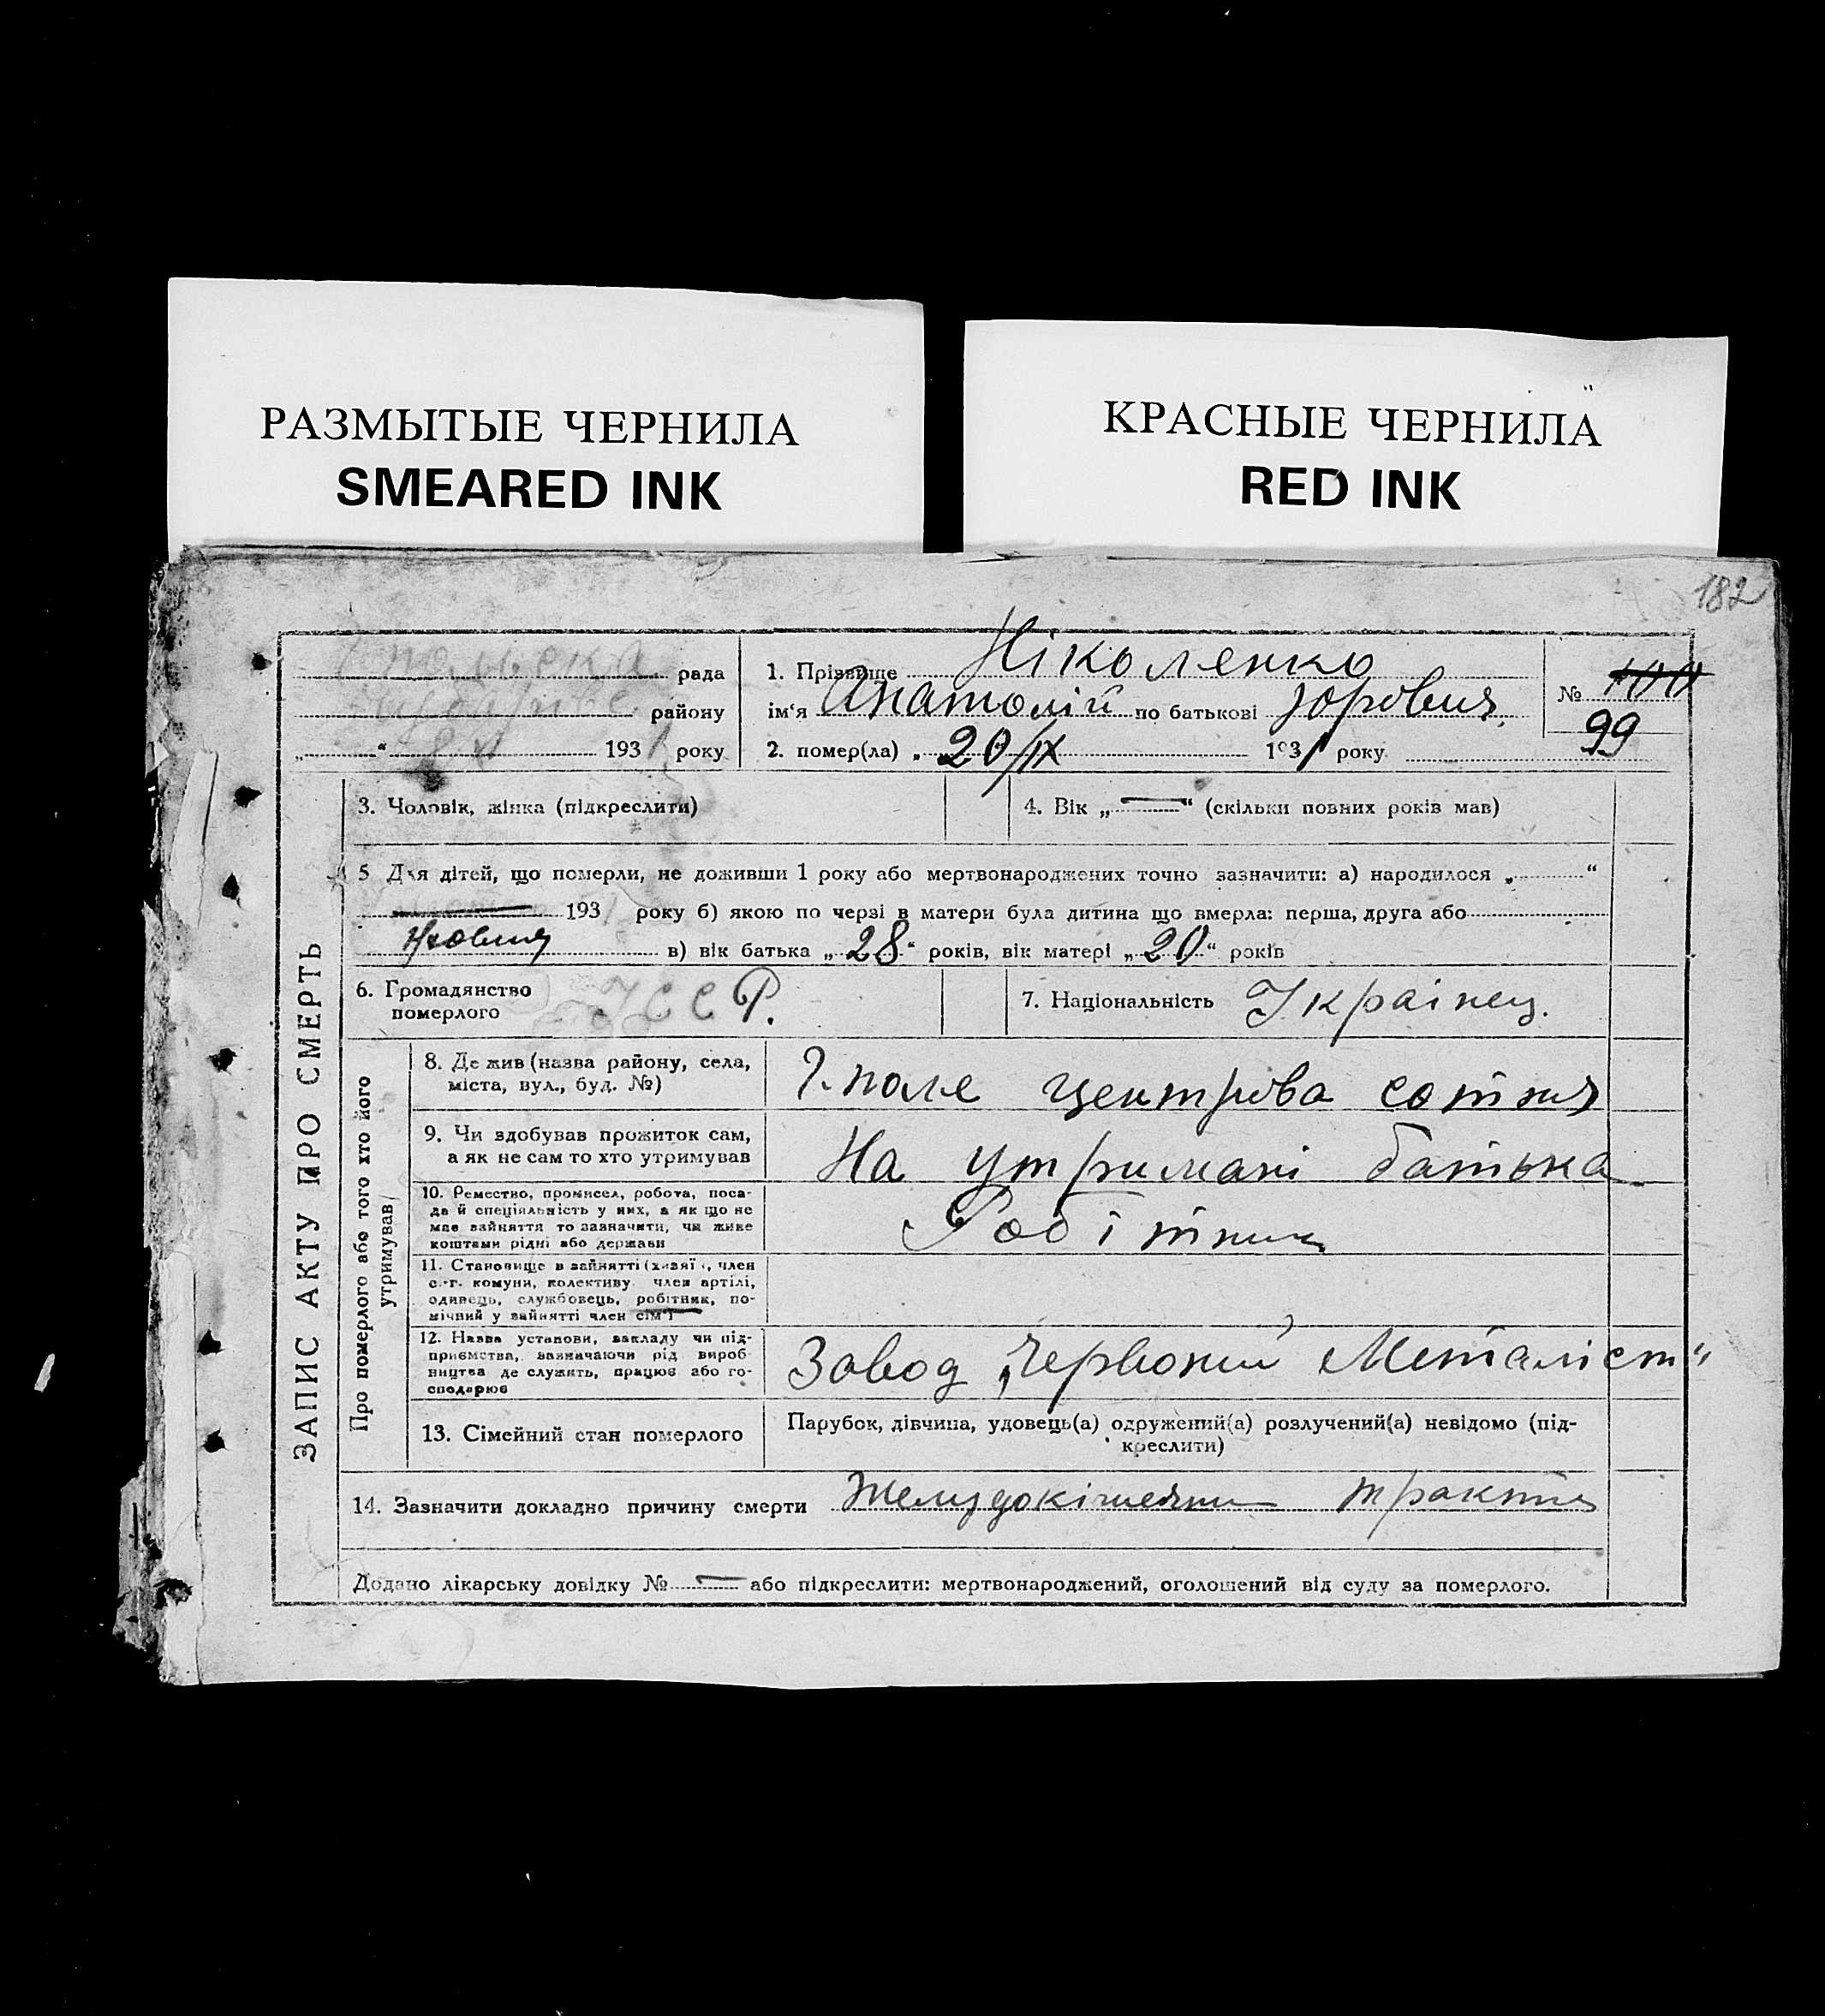 РАЗМЫТЫЕ ЧЕРНИЛА
SMEARED INK
КРАСНЫЕ ЧЕРНИЛА
RED INK
182
рада
району
193 1 року
1. Прізвище Ніколенко
ім‘я Анатолій по батькові Юрович
2. помер(ла) „ 20/IX 1931 року
№
99
ЗАПИС АКТУ ПРО СМЕРТЬ
3. Чоловік, жінка (підкреслити)
4. Вік „ — “ (скільки повних років мав)
5 Для дітей, що померли, не доживши 1 року або мертвонароджених точно зазначити: а) народилося „ “
193 року б) якою по черзі в матери була дитина що вмерла: перша, друга або
в) вік батька „ 28 “ років, вік матері „ 20 “ років
6. Громадянство
померлого
УССР.
7. Національність Українец.
Про померлого або того хто його
утримував
8. Де жив (назва району, села,
міста, вул., буд. №)
Г. поле центрова сотня
9. Чи здобував прожиток сам,
а як не сам то хто утримував
На утримані батька
10. Ремество, промисел, робота, поса-
да й спеціяльність у них, а як що не
має зайняття то зазначити, чи живе
коштами рідні або держави
Робітник
11. Становище в зайнятті (хазяї , член
с.-г. комуни, колективу член артілі,
одинець, службовець, робітник, по-
мічний у зайнятті член сім‘ї
12. Назва установи, закладу чи під-
приємства, зазначаючи рід вироб-
ництва де служить, працює або го-
сподарює
Завод „Червоний Металіст“
13. Сімейний стан померлого
Парубок, дівчина, удовець(а) одружений(а) розлучений(а) невідомо (під-
креслити)
14. Зазначити докладно причину смерти
Додано лікарську довідку № — або підкреслити: мертвонароджений, оголошений від суду за померлого.